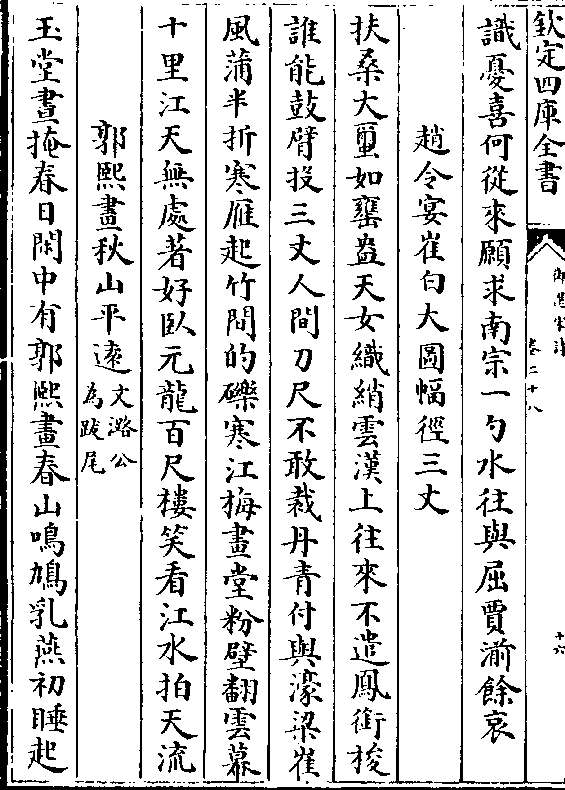 欽定四庫全書
御選宋詩
卷二十八
十六
識憂喜何從來願求南宗一勺水往與屈賈湔餘哀
趙令宴崔白大圖幅徑三丈
扶桑大䖝如甕盎天女織綃雲漢上往來不遣鳳銜梭
誰能鼓臂投三丈人間刀尺不敢裁丹青付與濠梁崔
風蒲半折寒雁起竹間的皪寒江梅畫堂粉壁翻雲幕
十里江天無處著好臥元龍百尺樓笑看江水拍天流
郭熙畫秋山平逺文潞公為跋尾
玉堂晝掩春日閑中有郭熙畫春山鳴鳩乳燕初睡起